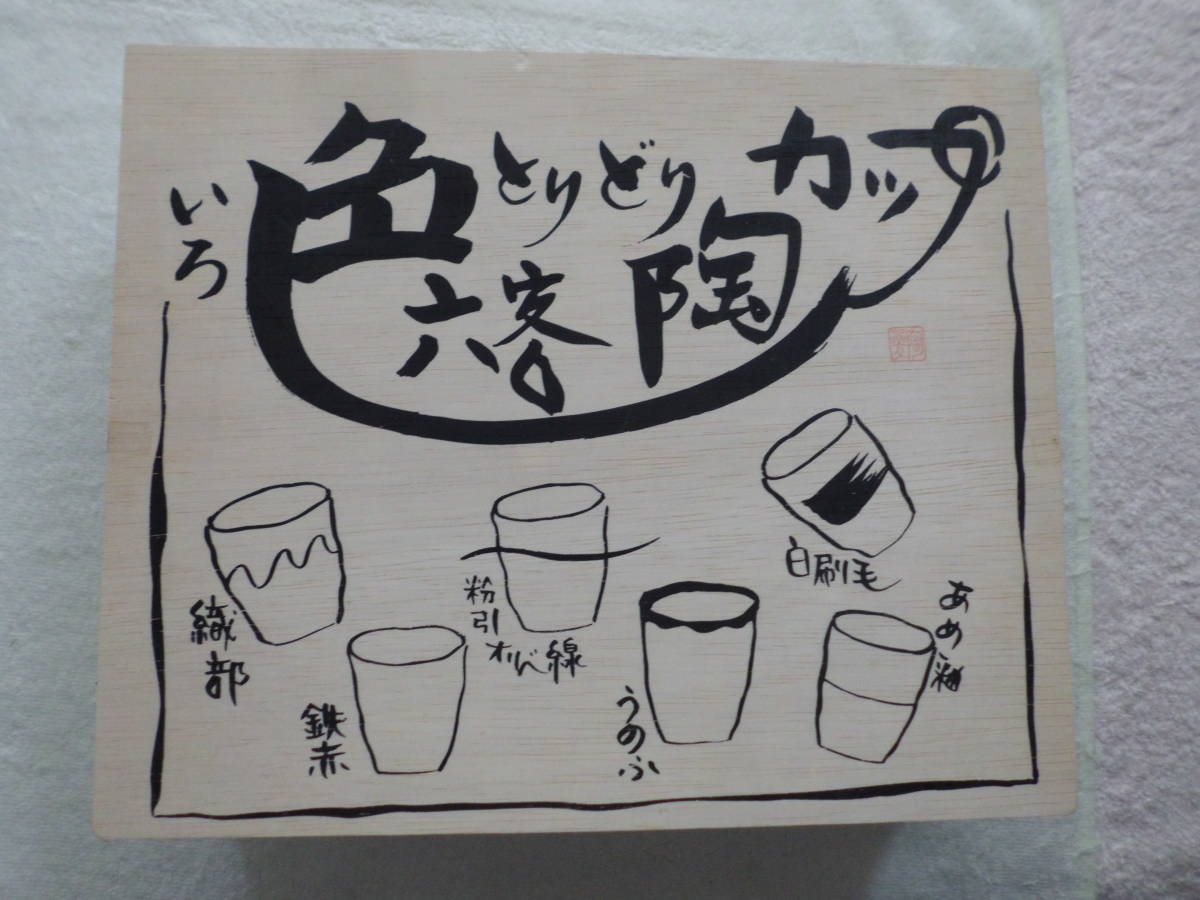 いろ
色とりどり
六客 陶カップ
織部
鉄赤
粉引
線
うのふ
白刷毛
あめ釉